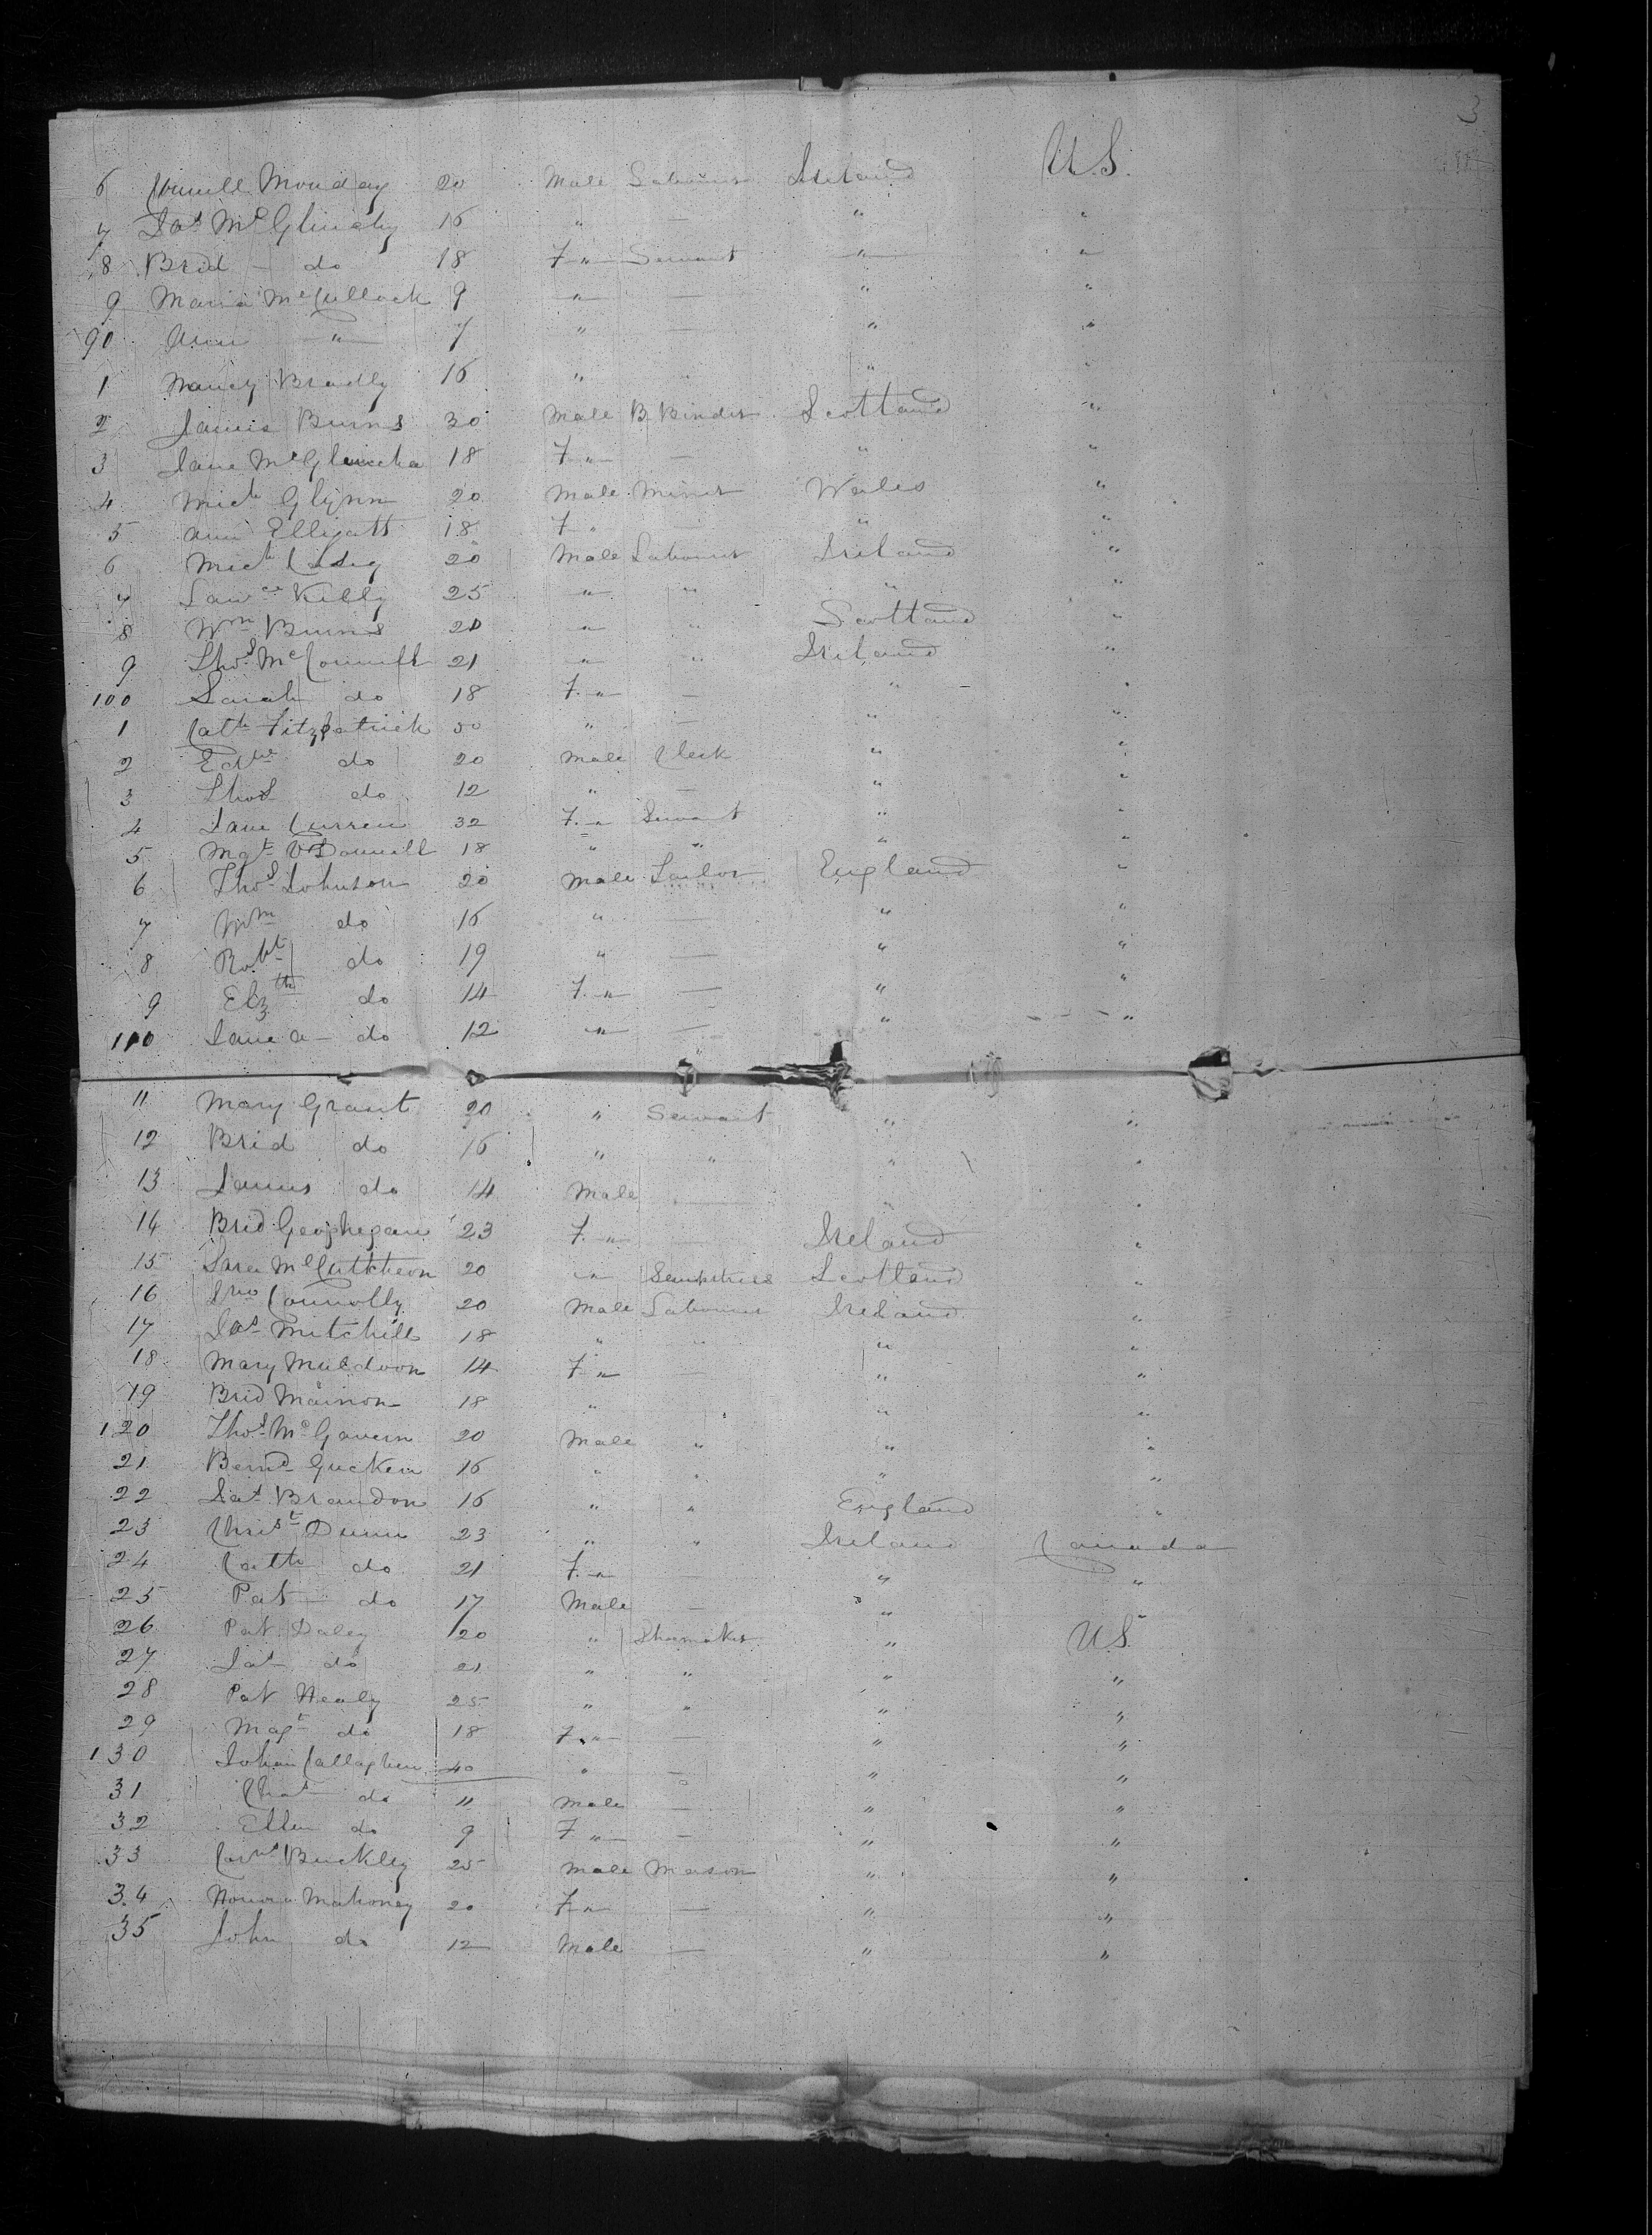 3
6 Connell Monday 20 Male Labourer Ireland U.S.
7 Jas McGlinchy 16 " — " "
8 Brid — do 18 F " Servant " "
9 Maria McCullock 9 " — " "
90 Ann — " — 7 " — " "
1 Nancy Bradly 16 " " " "
2 James Burns 30 Male B. Binder Scotland "
3 Jane McGlincha 18 F " — " "
4 Mich Glynn 20 Male Miner Wales "
5 Ann Elligatt 18 F " — " "
6 Mich Casey 20 Male Labourer Ireland "
7 Lawce Kelly 25 " " " "
8 Wm Burns 20 " " Scotland "
9 Thos McConnell 21 " " Ireland "
100 Sarah do 18 F. " — " "
1 Cath Fitzpatrick 50 " — " "
2 do 20 Male Clerk " "
3 Thos do 12 " — " "
4 Jane Curren 32 F. " Servant " "
5 Mgt O'Donnell 18 " " " "
6 Thos Johnson 20 Male Tailor England "
7 Wm do 16 " — " "
8 Robt do 19 " — " "
9 Elzth do 14 F. " — " "
110 Jane A — do 12 " — " "
11 Mary Grant 20 " Servant " "
12 Brid do 16 " " " "
13 James do 14 Male — " "
14 Brid Geoghegan 23 F. " — Ireland "
15 McCuttcheon 20 " Sempstress Scotland "
16 Jno Connolly 20 Male Labourer Ireland "
17 Jas Mitchell 18 " " " "
18 Mary Muldoon 14 F " — " "
19 Brid Mainon 18 " — " "
120 Thos McGavern 20 Male " " "
21 Bernd Gucken 16 " " " "
22 Jas Brandon 16 " " England "
23 Christ Dunn 23 " " Ireland Canada
24 Cath do 21 F. " — " "
25 Pat — do 17 Male — " "
26 Pat Daley 20 " Shoemaker " U.S.
27 Jas do 21 " " " "
28 Pat Healy 25 " " " "
29 Magt do 18 F. " — " "
130 Johan Callaghan 40 " — " "
31 Chas do 11 Male — " "
32 Ellen do 9 F " — " "
33 Corns Buckley 25 Male Mason " "
34 Honora Mahoney 20 F " — " "
35 John do 12 Male — " "